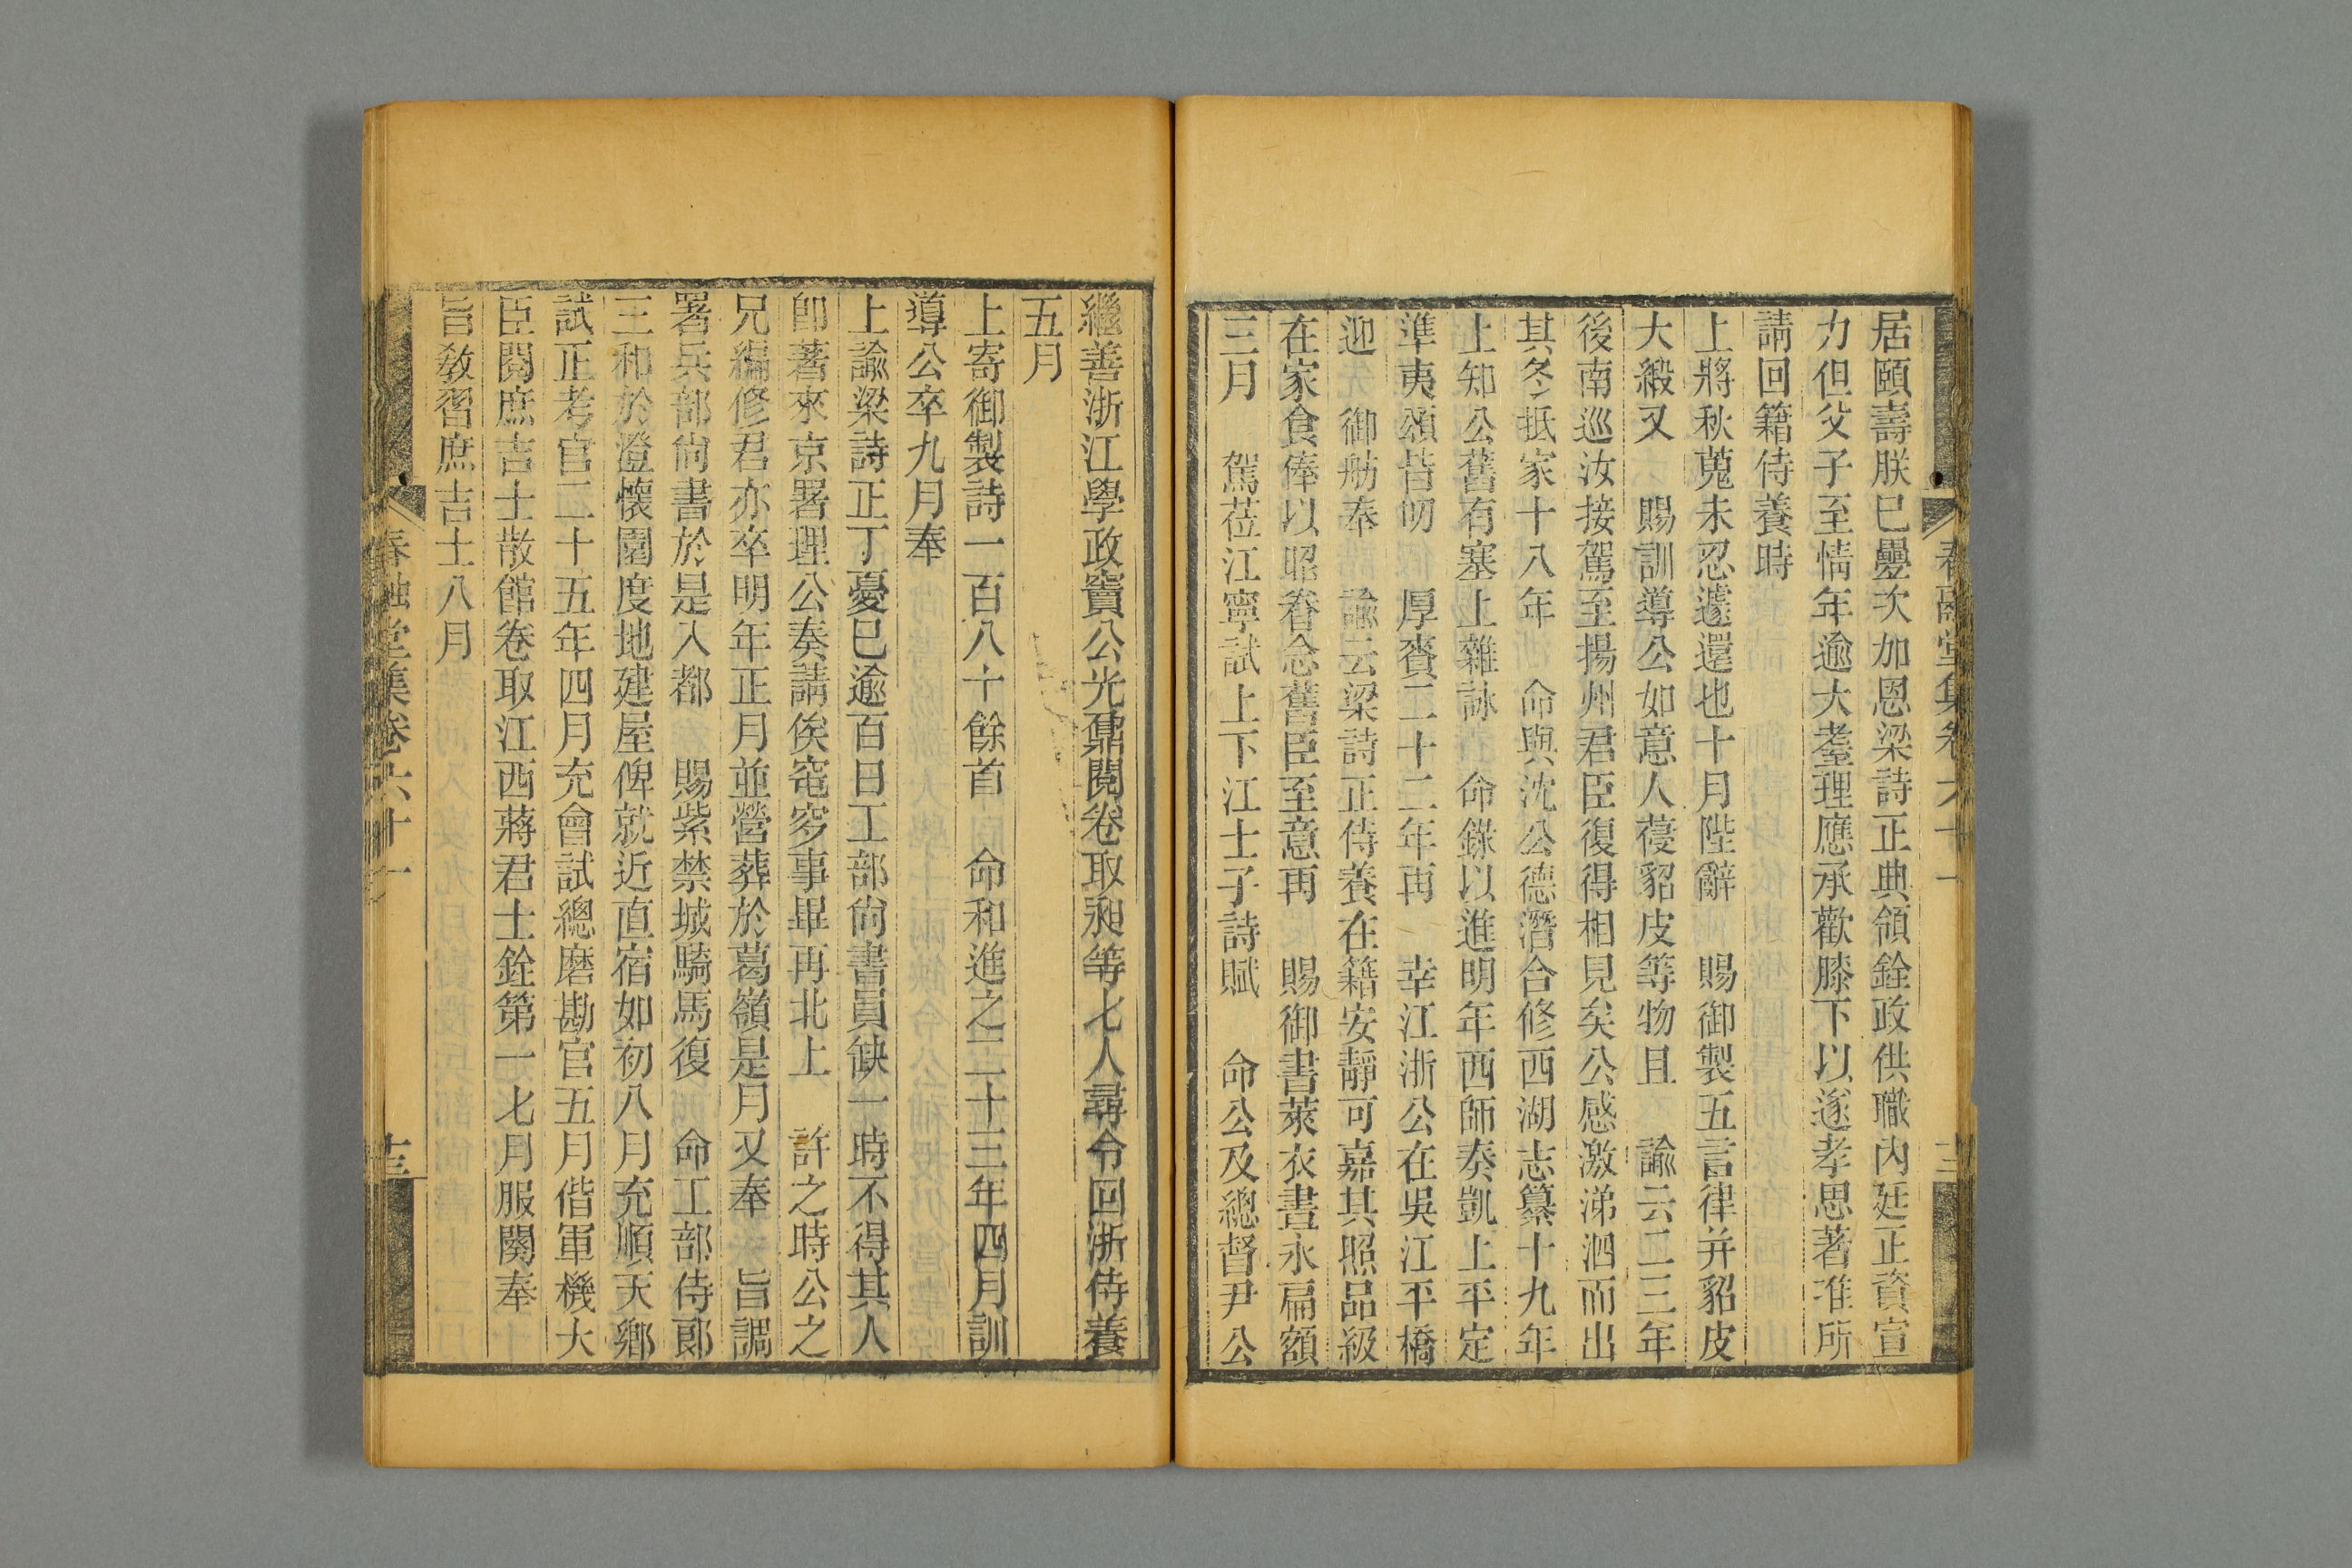 春融堂集卷六十一
居頤壽朕已疊次加恩梁詩正典領銓政供職內廷正資宣
力但父子至情年逾大耋理應承歡膝下以遂孝思著准所
請回籍侍養時
上將秋蒐未忍遽還也十月陛辭 賜御製五言律并貂皮
大緞又 賜訓導公如意人葠貂皮等物且 諭云二三年
後南巡汝接駕至揚州君臣復得相見矣公感激涕泗而出
其冬抵家十八年 命與沈公德潛合修西湖志纂十九年
上知公舊有塞上雜詠 命錄以進明年西師奏凱上平定
準夷頌皆叨 厚賚二十二年再 幸江浙公在吳江平橋
迎 御舫奉 諭云梁詩正侍養在籍安靜可嘉其照品級
在家食俸以昭眷念舊臣至意再 賜御書萊衣晝永扁額
三月 駕莅江寧試上下江士子詩賦 命公及總督尹公
繼善浙江學政竇公光鼐閱卷取昶等七人尋令回浙侍養
五月
上寄御製詩一百八十餘首 命和進之二十三年四月訓
導公卒九月奉
上諭梁詩正丁憂已逾百日工部尙書員缺一時不得其人
卽著來京署理公奏請俟窀穸事畢再北上 許之時公之
兄編修君亦卒明年正月並營葬於葛嶺是月又奉 旨調
署兵部尙書於是入都 賜紫禁城騎馬復 命工部侍郞
三和於澄懷園度地建屋俾就近直宿如初八月充順天鄉
試正考官二十五年四月充會試總磨勘官五月偕軍機大
臣閱庶吉士散館卷取江西蔣君士銓第一七月服闋奉
旨敎習庶吉士八月
春融堂集卷六十一
十三